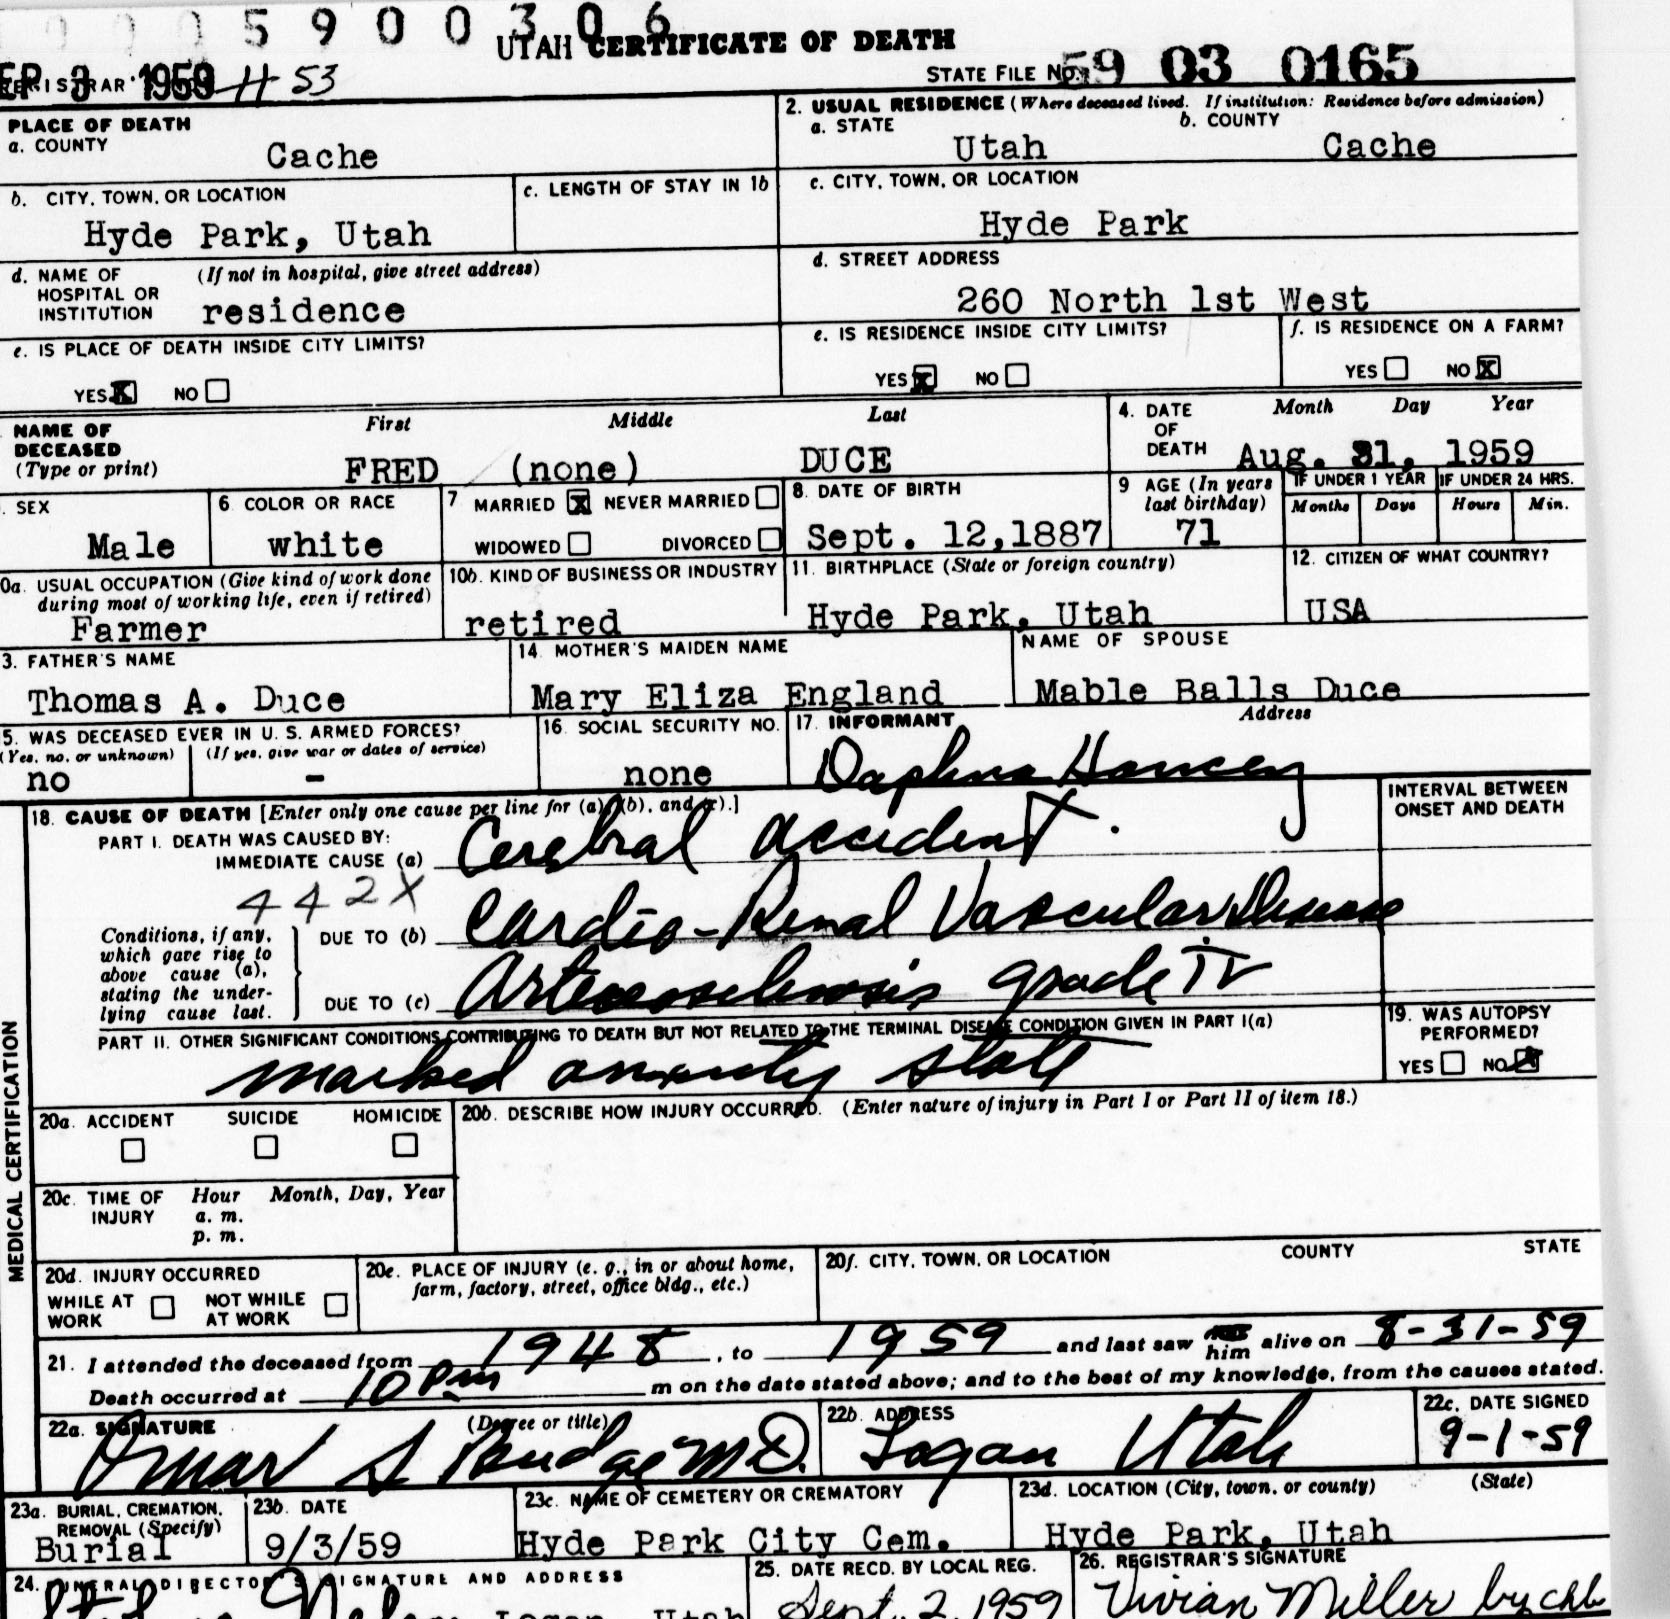 0 0 0 5 9 0 0 3 0 6
UTAH CERTIFICATE OF DEATH
REGISTRAR'S
SEP 3 1959 H 53
STATE FILE NO. 59 03 0165
PLACE OF DEATH
a. COUNTY
Cache
2. USUAL RESIDENCE (Where deceased lived. If institution: Residence before admission)
a. STATE
Utah
b. COUNTY
Cache
b. CITY, TOWN, OR LOCATION
Hyde Park, Utah
c. LENGTH OF STAY IN 1b
c. CITY, TOWN, OR LOCATION
Hyde Park
d. NAME OF HOSPITAL OR INSTITUTION
(If not in hospital, give street address)
residence
d. STREET ADDRESS
260 North 1st West
e. IS PLACE OF DEATH INSIDE CITY LIMITS?
YES X NO
e. IS RESIDENCE INSIDE CITY LIMITS?
YES X NO
f. IS RESIDENCE ON A FARM?
YES NO X
NAME OF DECEASED
(Type or print)
First Middle Last
FRED (none) DUCE
4. DATE OF DEATH
Month Day Year
Aug. 31, 1959
. SEX
Male
6 COLOR OR RACE
white
7 MARRIED X NEVER MARRIED
WIDOWED DIVORCED
8. DATE OF BIRTH
Sept. 12,1887
9 AGE (In years last birthday)
71
IF UNDER 1 YEAR
Months Days
IF UNDER 24 HRS.
Hours Min.
0a. USUAL OCCUPATION (Give kind of work done during most of working life, even if retired)
Farmer
10b. KIND OF BUSINESS OR INDUSTRY
retired
11. BIRTHPLACE (State or foreign country)
Hyde Park, Utah
12. CITIZEN OF WHAT COUNTRY?
USA
3. FATHER'S NAME
Thomas A. Duce
14. MOTHER'S MAIDEN NAME
Mary Eliza England
NAME OF SPOUSE
Mable Balls Duce
5. WAS DECEASED EVER IN U. S. ARMED FORCES?
(Yes, no, or unknown) (If yes, give war or dates of service)
no -
16. SOCIAL SECURITY NO.
none
17. INFORMANT Address
Daphna Hancey
MEDICAL CERTIFICATION
18. CAUSE OF DEATH [Enter only one cause per line for (a), (b), and (c).]
INTERVAL BETWEEN ONSET AND DEATH
PART I. DEATH WAS CAUSED BY:
IMMEDIATE CAUSE (a) Cerebral accident.
442X
Conditions, if any, which gave rise to above cause (a), stating the underlying cause last.
DUE TO (b) Cardio-Renal Vascular Disease
DUE TO (c) Arteriosclerosis grade IV
PART II. OTHER SIGNIFICANT CONDITIONS CONTRIBUTING TO DEATH BUT NOT RELATED TO THE TERMINAL DISEASE CONDITION GIVEN IN PART I(a)
marked anxiety state
19. WAS AUTOPSY PERFORMED?
YES NO X
20a. ACCIDENT SUICIDE HOMICIDE
20b. DESCRIBE HOW INJURY OCCURRED. (Enter nature of injury in Part I or Part II of item 18.)
20c. TIME OF INJURY
Hour Month, Day, Year
a. m.
p. m.
20d. INJURY OCCURRED
WHILE AT WORK NOT WHILE AT WORK
20e. PLACE OF INJURY (e. g., in or about home, farm, factory, street, office bldg., etc.)
20f. CITY, TOWN, OR LOCATION COUNTY STATE
21. I attended the deceased from 1948, to 1959 and last saw him alive on 8-31-59
Death occurred at 10 Pm m on the date stated above; and to the best of my knowledge, from the causes stated.
22a. SIGNATURE (Degree or title)
Omar S Budge M D.
22b. ADDRESS
Logan Utah
22c. DATE SIGNED
9-1-59
23a. BURIAL, CREMATION, REMOVAL (Specify)
Burial
23b. DATE
9/3/59
23c. NAME OF CEMETERY OR CREMATORY
Hyde Park City Cem.
23d. LOCATION (City, town, or county) (State)
Hyde Park, Utah
24. FUNERAL DIRECTOR'S SIGNATURE AND ADDRESS
Logan, Utah
25. DATE RECD. BY LOCAL REG.
Sept. 2, 1959
26. REGISTRAR'S SIGNATURE
Vivian Miller by chb